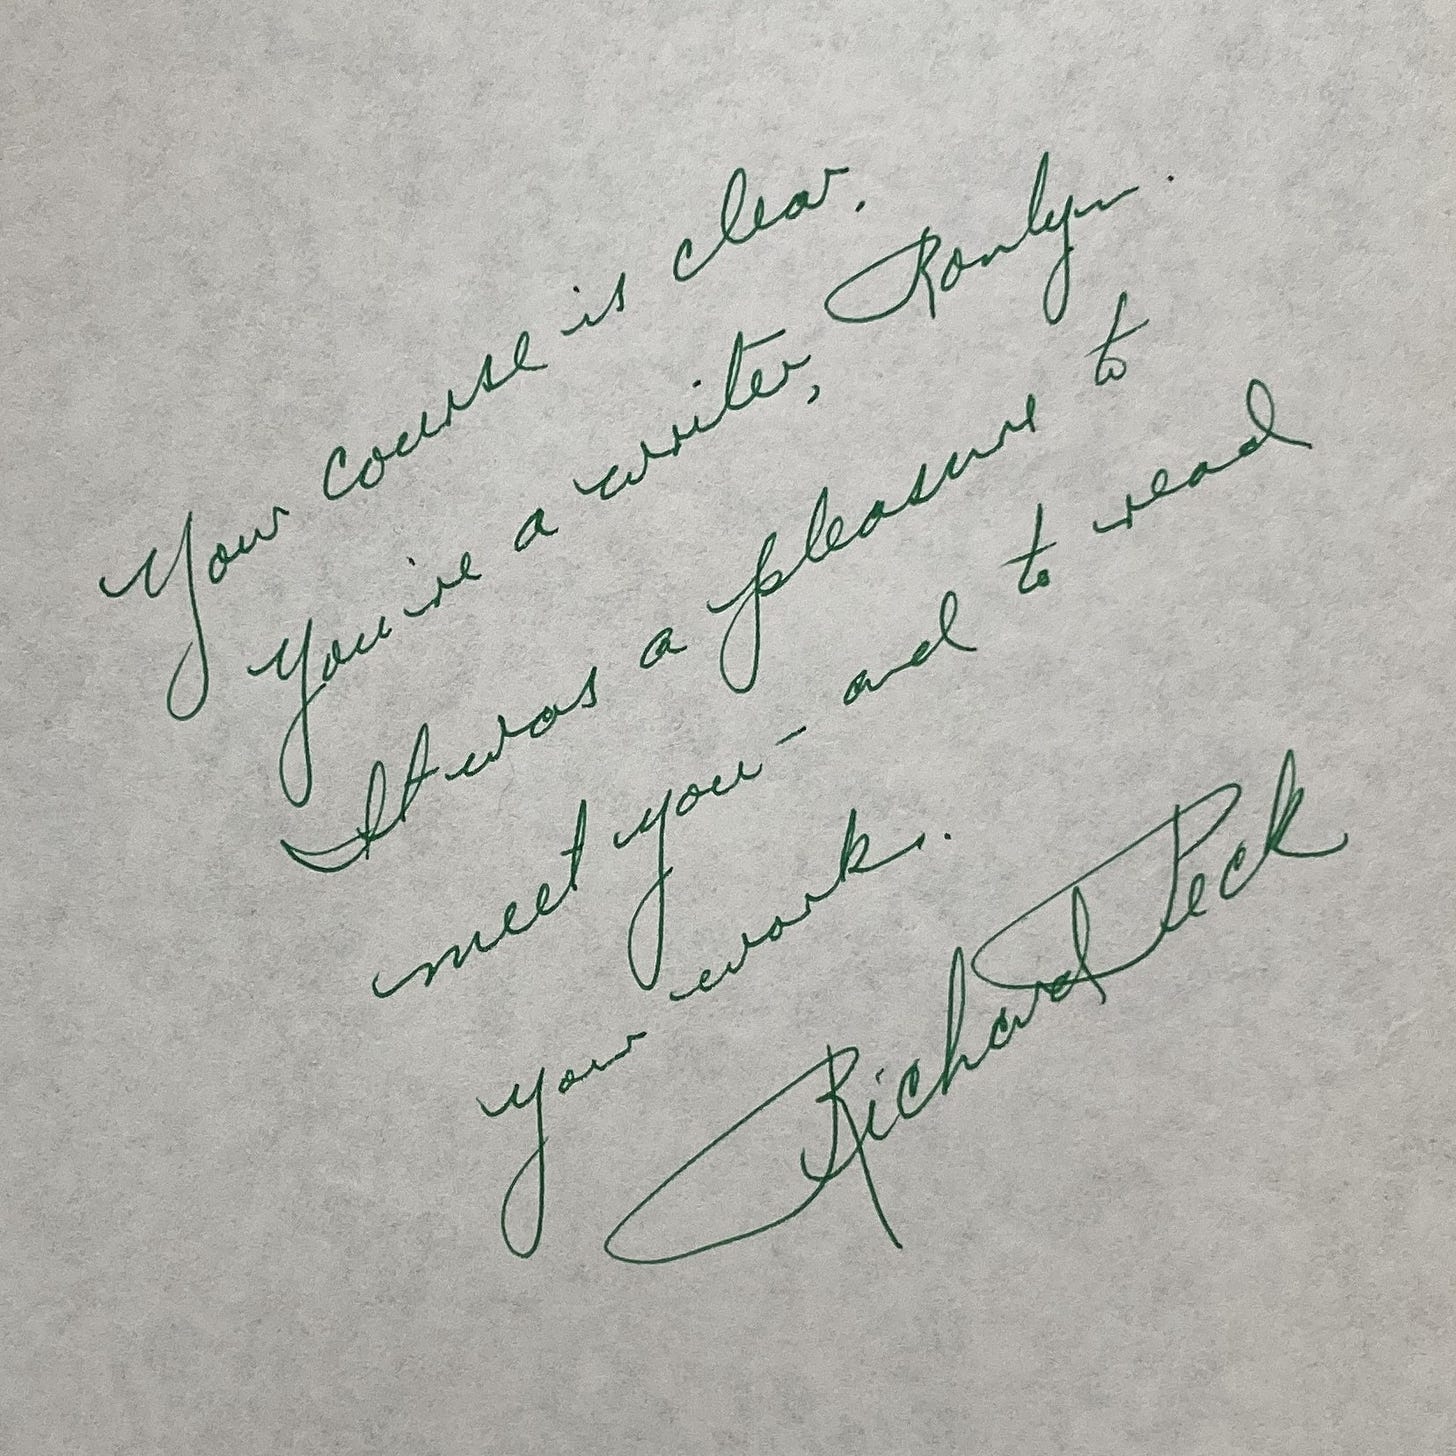 Your course is clear.
You're a writer, Ronlyn.
It was a pleasure to
meet you — and to read
your work.
Richard Peck